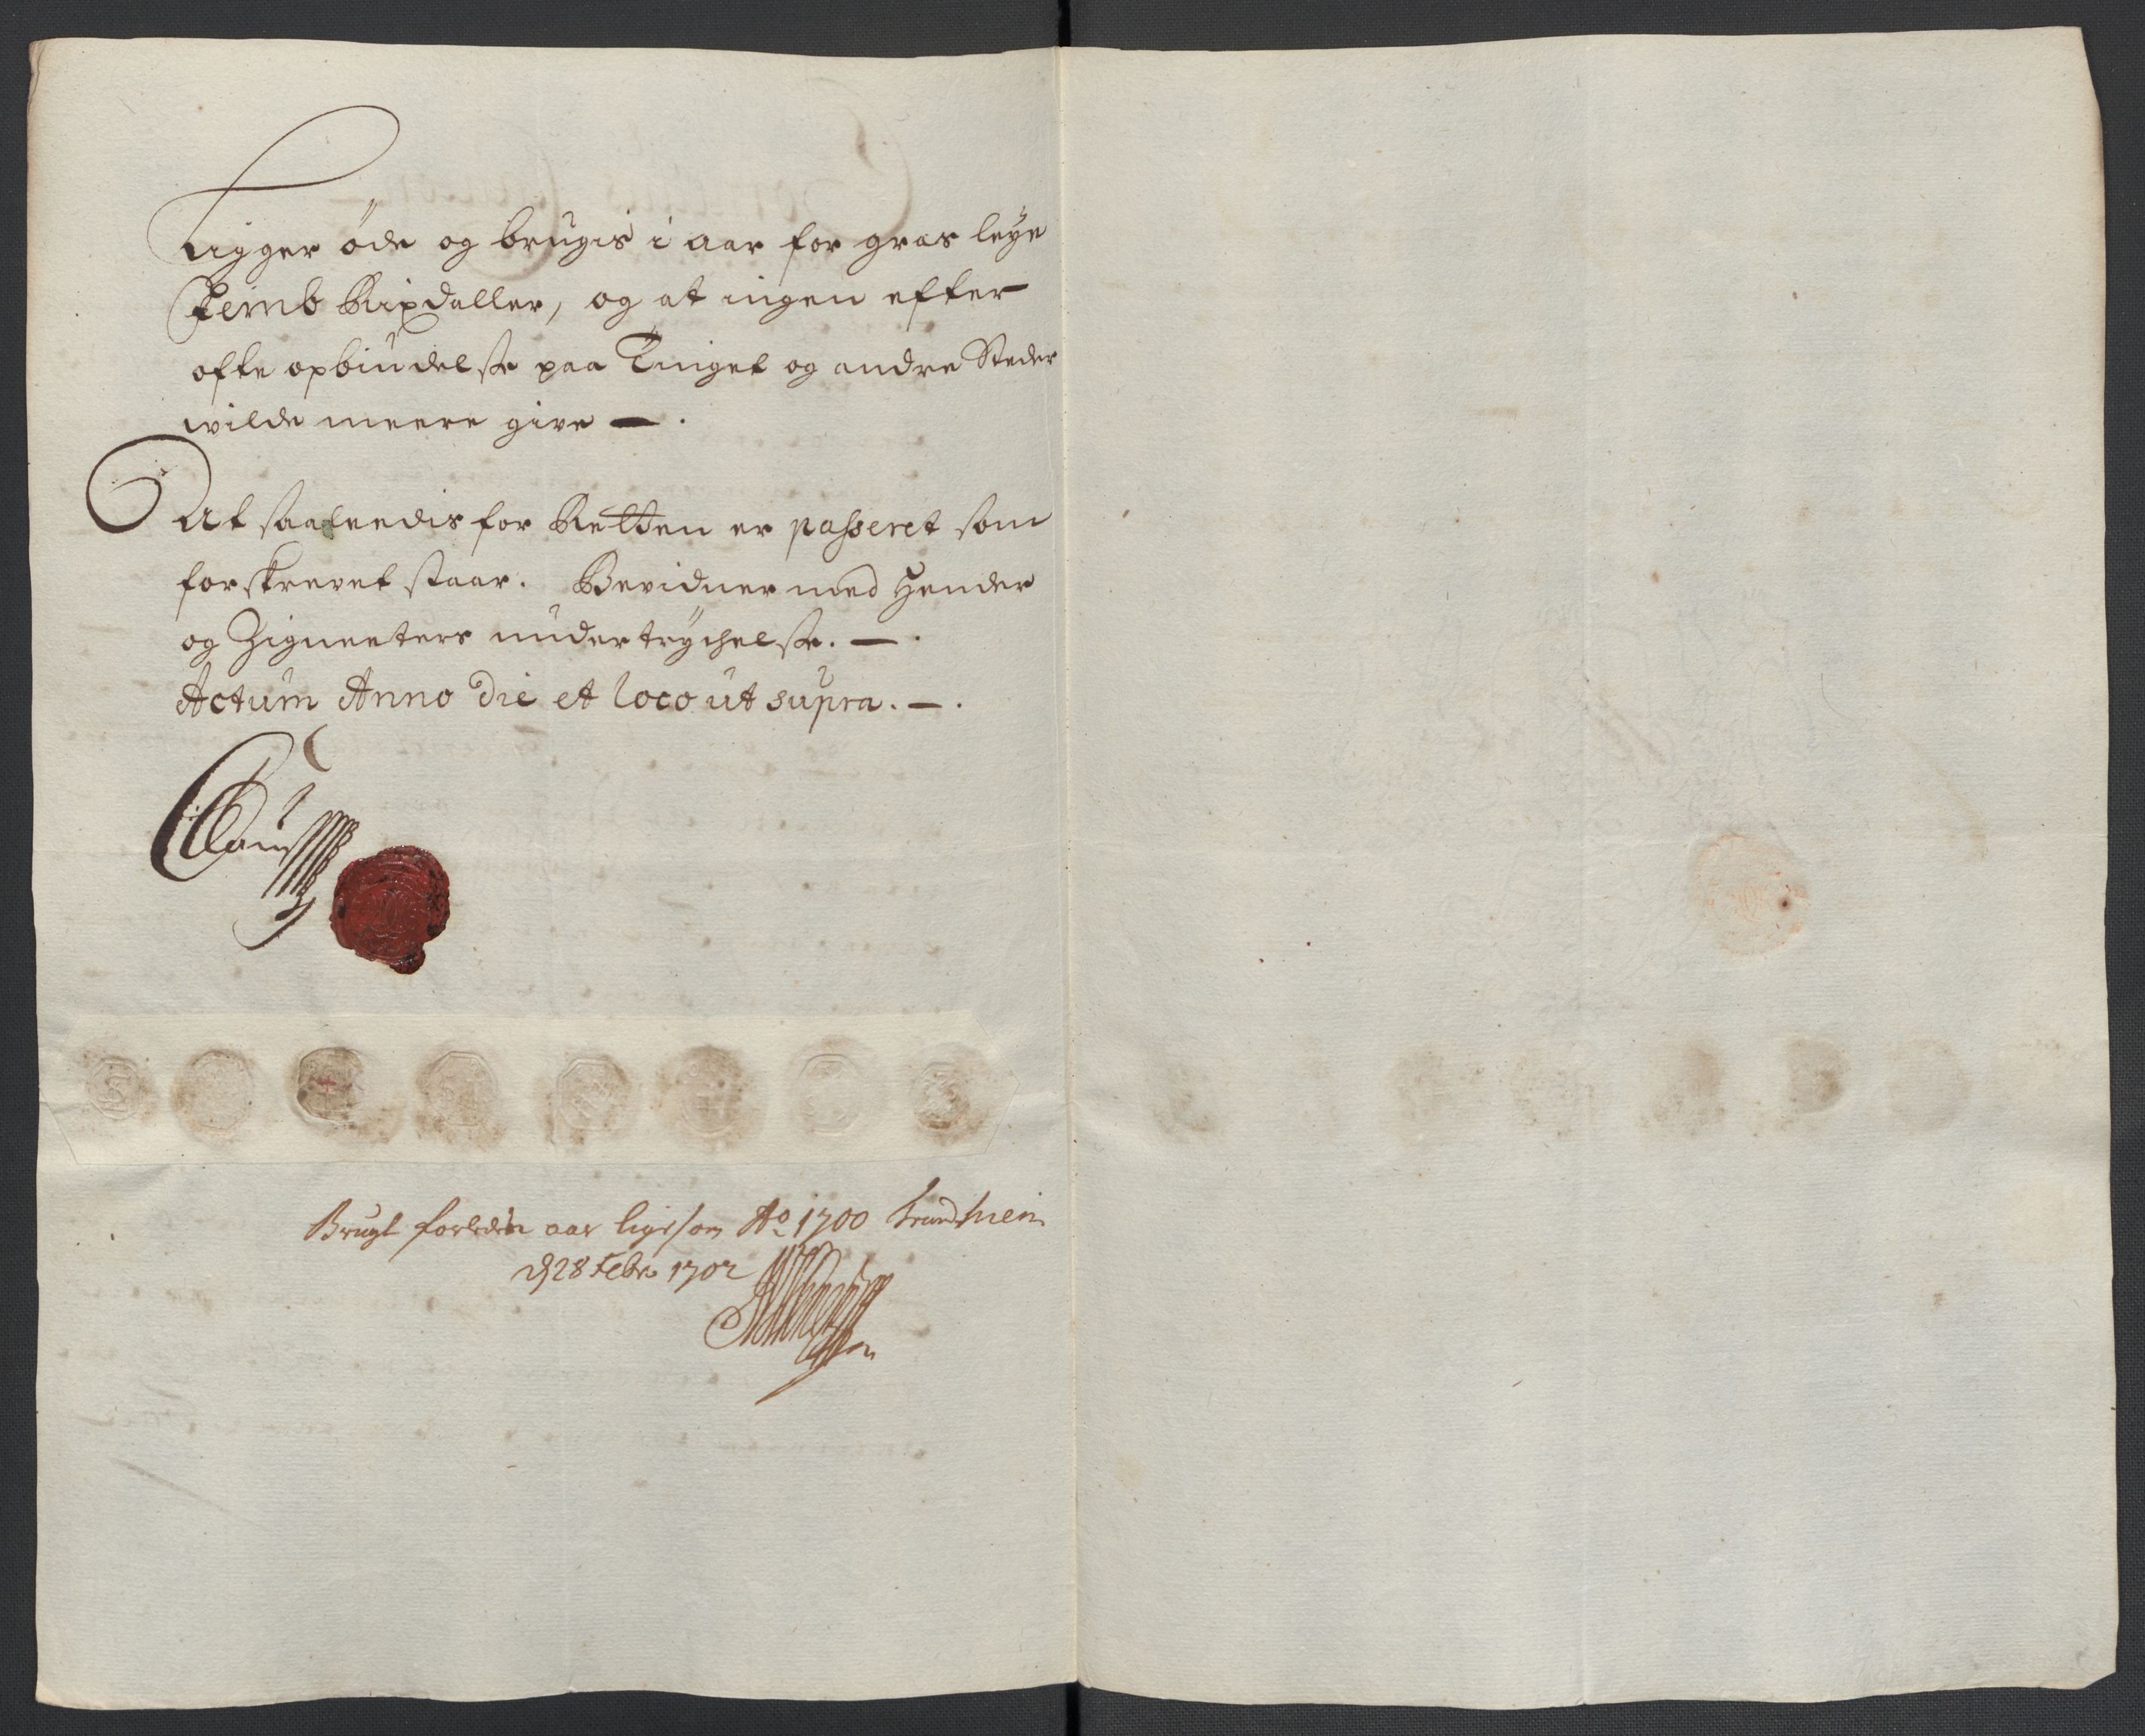 Ligger øde og brugis i aar for græs leye
Femb Rixdaller, og at ingen efter
ofte opbiudelsse paa Tinget og andre Steder
wilde meere give — .
At saaleedis for Retten er passeret som
forskrevet staar. Bevidner med Hender
og Zigneeters undertrychelsse. — .
Actum Anno Die et loco ut supra. — .
Brugt forleden aar ligesom Ao 1700 Trundhiem
d 28 Febr 1702